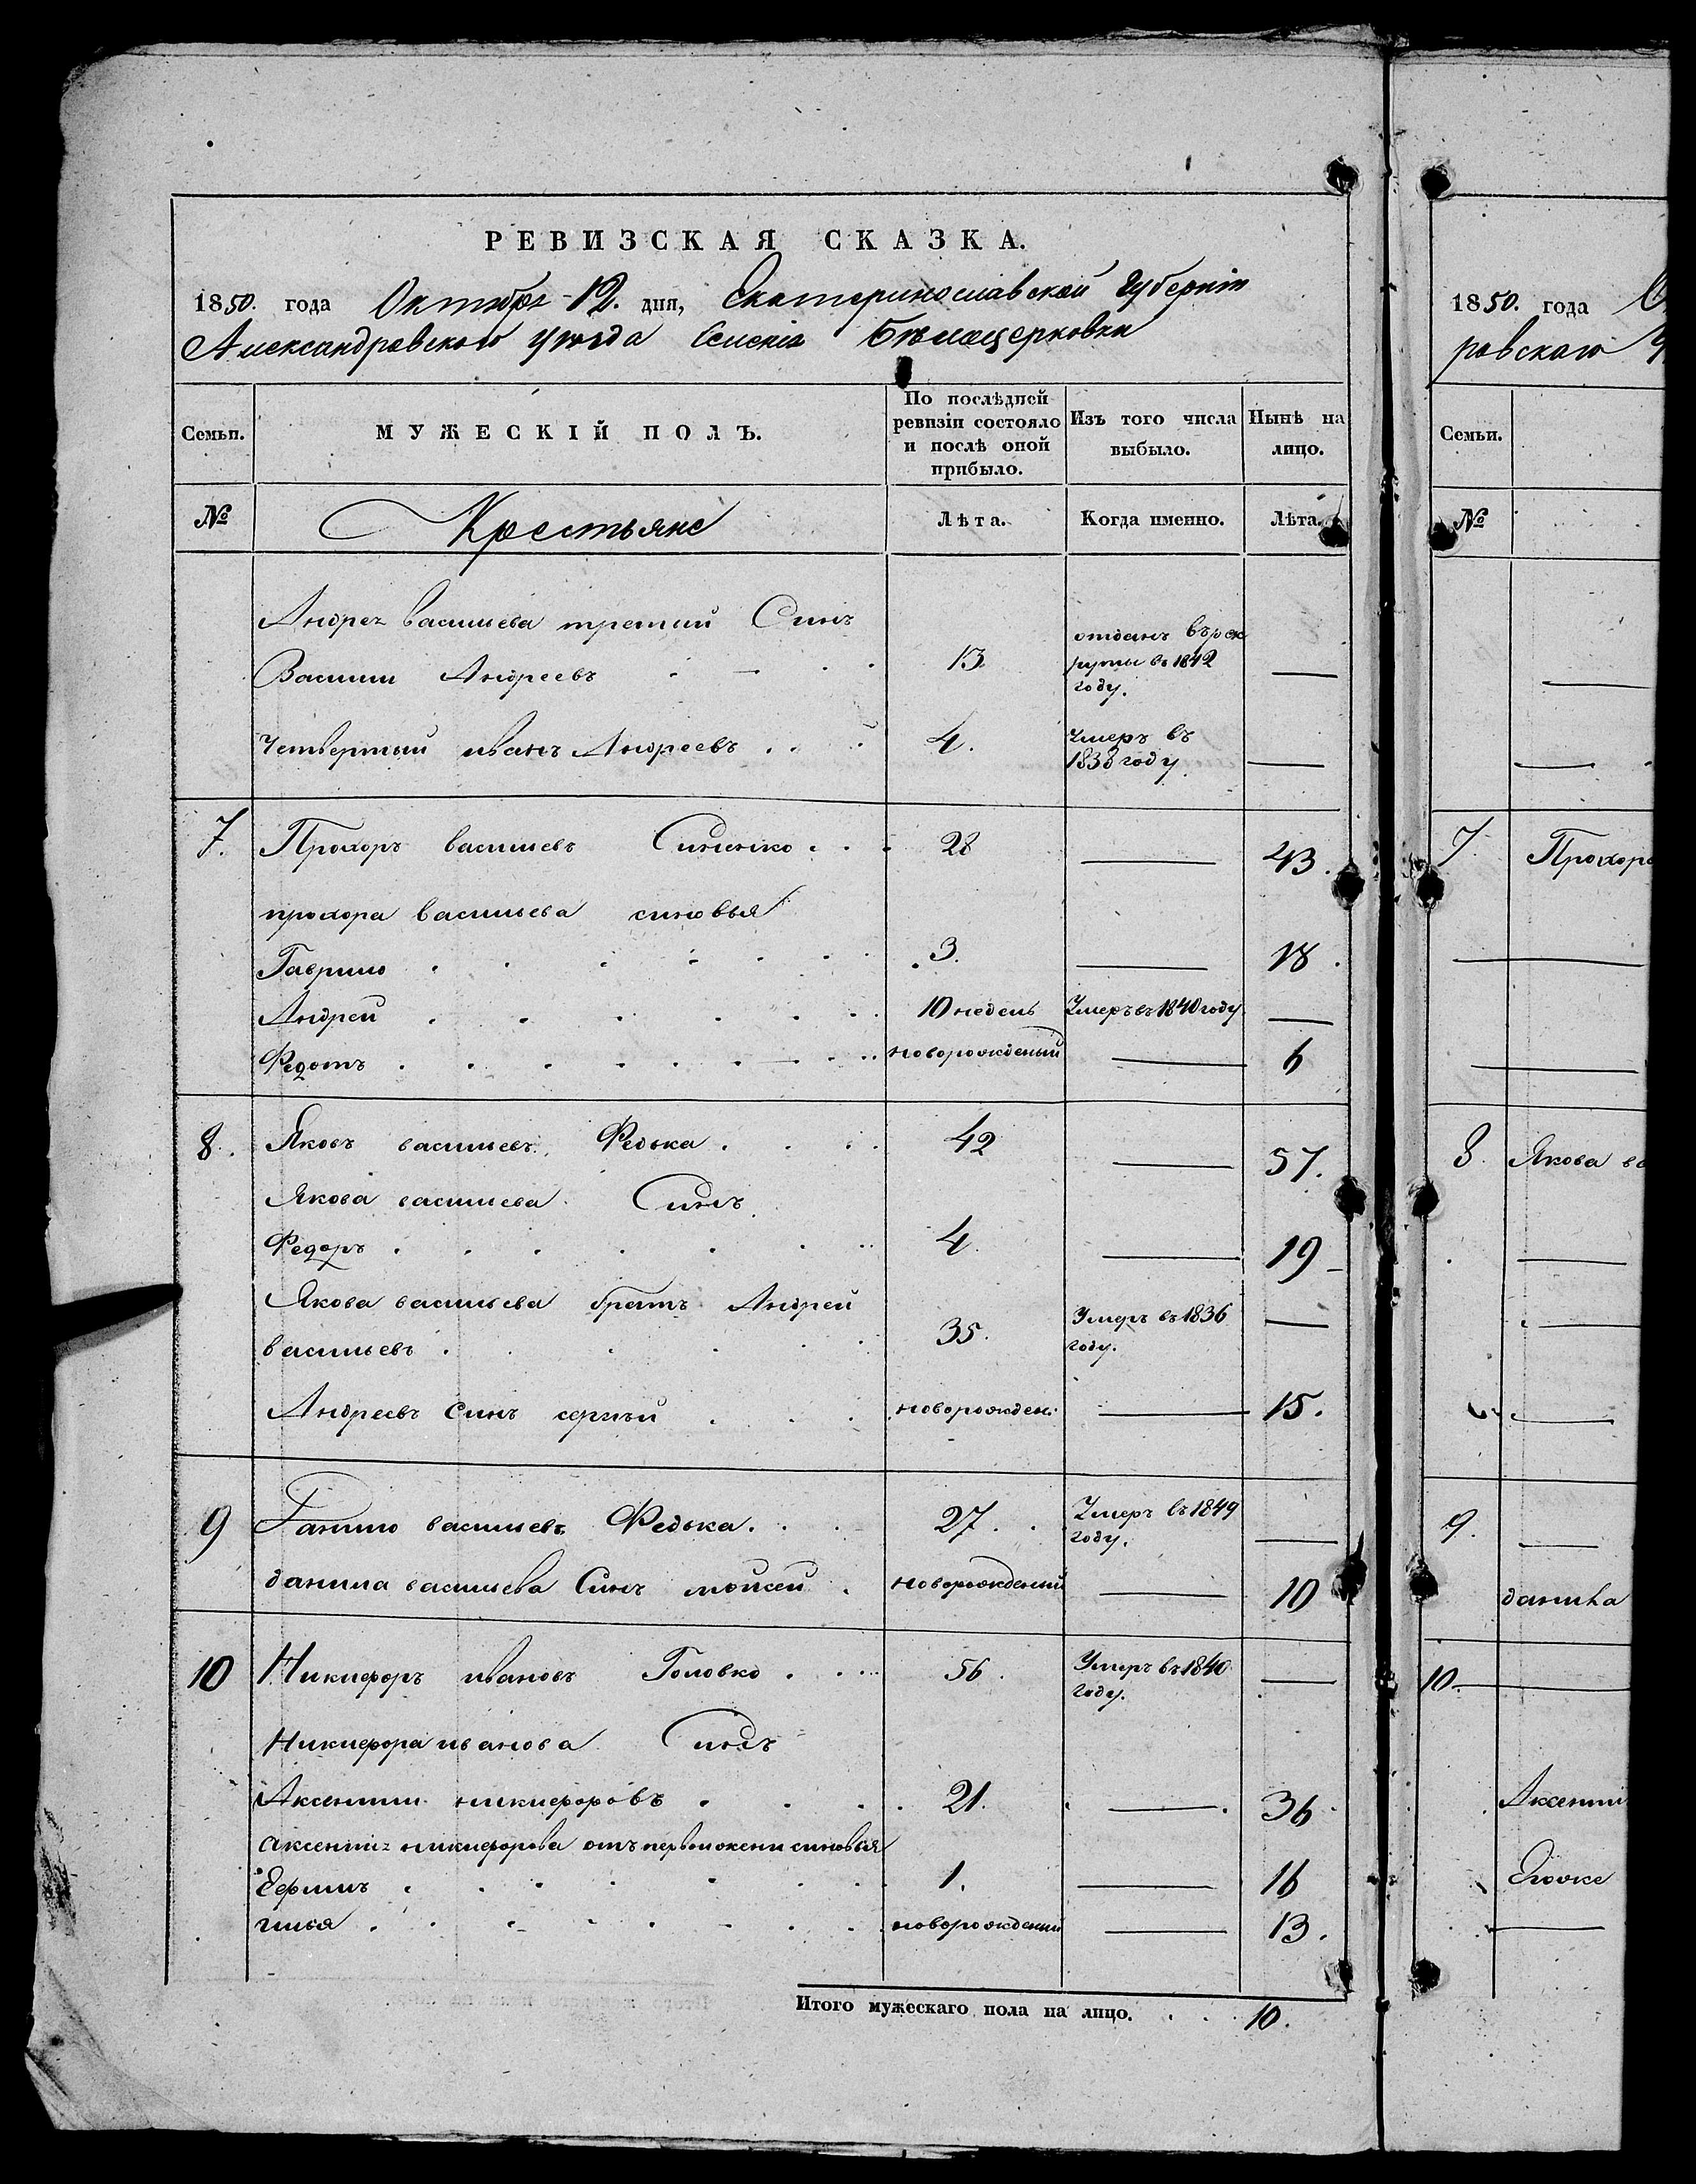 РЕВИЗСКАЯ СКАЗКА.
1850. года Октября 12. дня, Екатеринославской Губерніи
Александровского уѣзда Селенія Бѣлоцерковки
Семьи. МУЖЕСКІЙ ПОЛЪ. По послѣдней ревизіи состояло и послѣ оной прибыло. Изъ того числа выбыло. Нынѣ на лицо.
№ Крестьяне Лѣта. Когда именно. Лѣта.
Андрея васильева третий Синъ
Васили Андреевъ 13 отданъ въ рекруты въ 1842 году. —
Четвертый иванъ Андреевъ 4. умеръ въ 1838 году —
7. Прохоръ васильевъ Синенко 28 — 43.
прохора васильева синовья
Гаврило 3. — 18.
Андрей 10 недель Умеръ въ 1840 году —
Федотъ новорожденый — 6
8. Яковъ васильевъ Федька 42 — 57.
Якова васильева Синъ
Федоръ 4. — 19
Якова васильева братъ Андрей
васильевъ 35. Умеръ въ 1836 году. —
Андреевъ Синъ сергѣй новорожден: — 15.
9 Данило васильевъ Федька. 27. Умеръ въ 1849 году. —
данила васильева Синъ мойсей новорожденый — 10
10 Никифоръ ивановъ Головко 56. Умеръ въ 1840 году. —
Никифора иванова Синъ
Аксентий никифоровъ 21. — 36
Аксентия никифорова отъ первой жени синовья
Ефимъ 1. — 16
илья новорожденый — 13.
Итого мужескаго пола на лицо. 10.
1850. года
ровскаго
Семьи.
№
7. Прохора
8. Якова ва
9.
данила
10.
Аксенті
Егоже